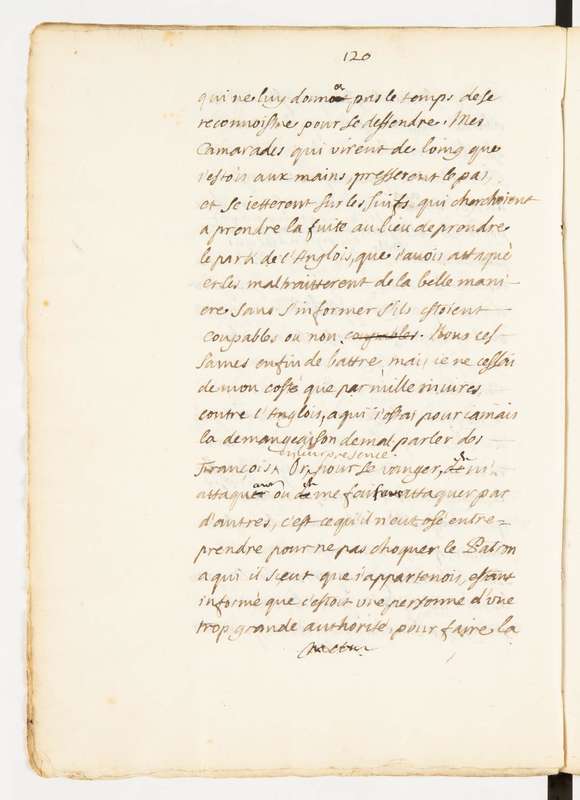 120
qui ne luy donna pas le temps de se
reconnoistre pour se deffendre. Mes
Camarades qui virent de loing que
i'estois aux mains presserent le pas,
et se ietterent sur les Juifs qui cherchoient
a prendre la fuite au lieu de prendre
le parti de l'Anglois, que i'auois attaqué
et les maltraitterent de la belle mani
ere sans s'informer s'ils estoient
Coupables ou non coupables. Nous ces
sames enfin de battre, mais ie ne cessai
de mon costé que par mille iniures
contre l'Anglois, a qui i'ostai pour iamais
la demangeaison de mal parler des
en leur presence.
François. Or pour se vanger, m'
attaquer ou me faire attaquer par
d'autres, c'est ce qu'il n'eut osé entre=
prendre pour ne pas choquer le Patron
a qui il sceut que i'appartenois, estant
informé que c'estoit vne personne d'vne
trop grande authorité, pour faire la